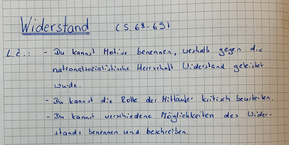 Widerstand (S. 68-69)
L.Z.: - Du kannst Motive benennen, weshalb gegen die
nationalsozialistische Herrschaft Widerstand geleistet
wurde.
- Du kannst die Rolle der Mitläufer kritisch beurteilen.
- Du kannst verschiedene Möglichkeiten des Wider-
stands benennen und beschreiben.